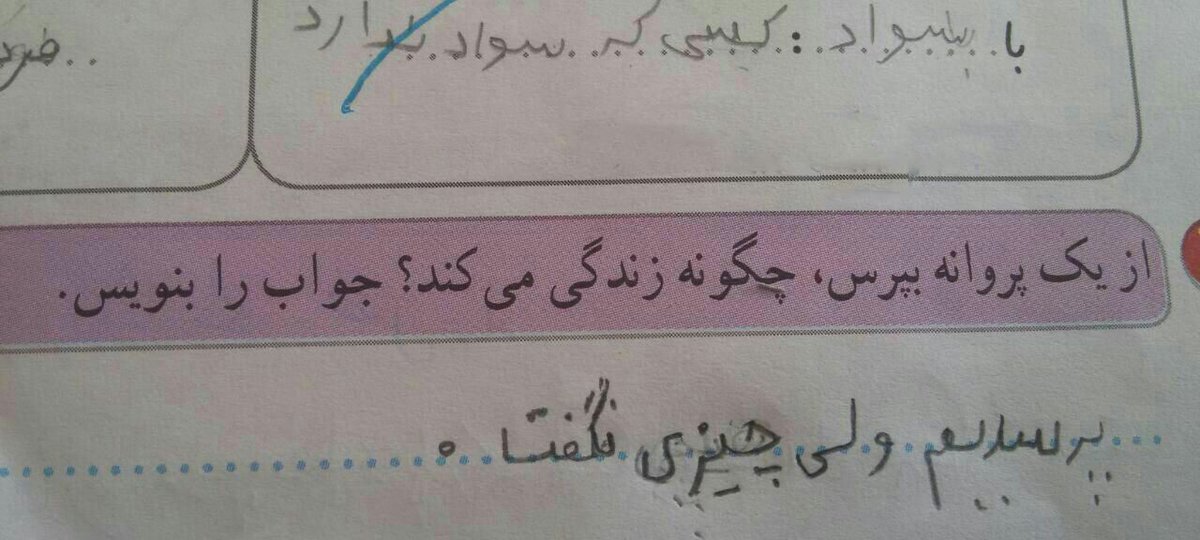 با بیسواد : کسی که سواد ندارد
از یک پروانه بپرس، چگونه زندگی می‌کند؟ جواب را بنویس.
پرسیدم ولی چیزی نگفت.